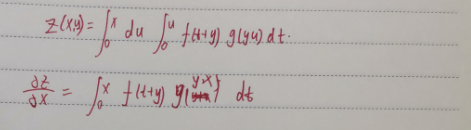 z(x,y) = ∫₀ˣ du ∫₀ᵘ f(t+y) g(yu) dt.
∂z/∂x = ∫₀ˣ f(t+y) g(y·x) dt